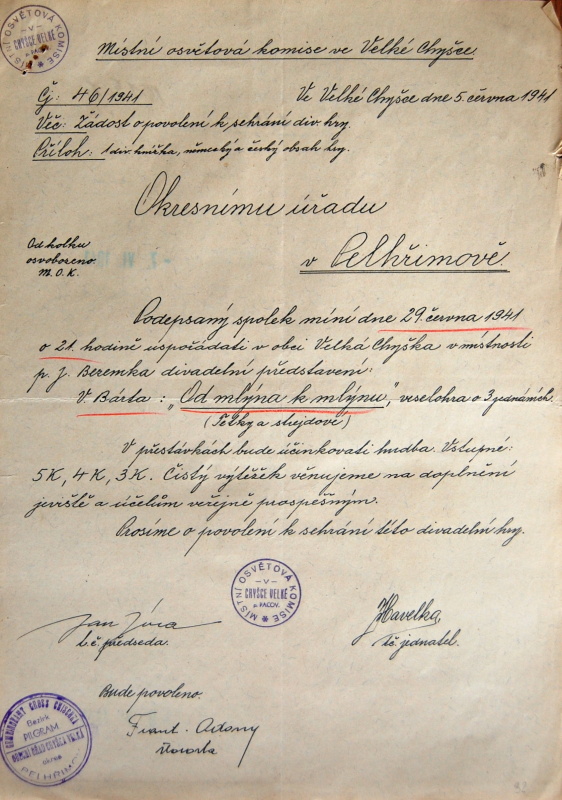 MÍSTNÍ OSVĚTOVÁ KOMISE
– V –
CHYŠCE VELKÉ
p. PACOV.
Místní osvětová komise ve Velké Chyšce
Čj: 46/1941
Ve Velké Chyšce dne 5. června 1941
Věc: Žádost o povolení k sehrání div. hry.
Příloh: 1 div. knížka, německý a český obsah hry.
Okresnímu úřadu
Od kolku
osvobozeno.
M.O.K.
v Pelhřimově
Podepsaný spolek míní dne 29. června 1941
o 21. hodině uspořádati v obci Velká Chyška v místnosti
p. J. Beremka divadelní představení:
V. Bárta: „Od mlýna k mlýnu", veselohra o 3 jednáních.
(Tetky a strejdové)
V přestávkách bude účinkovati hudba. Vstupné:
5K, 4K, 3K. Čistý výtěžek věnujeme na doplnění
jeviště a účelům veřejně prospěšným.
Prosíme o povolení k sehrání této divadelní hry.
MÍSTNÍ OSVĚTOVÁ KOMISE
– V –
CHYŠCE VELKÉ
p. PACOV.
Jan Jůza
t.č. předseda.
JHavelka
tč. jednatel.
Bude povoleno.
Frant. Adamy
starosta
Bezirk
PILGRAM
OBECNÍ ÚŘAD CHYŠKA VELKÁ
okres
PELHŘIMOV